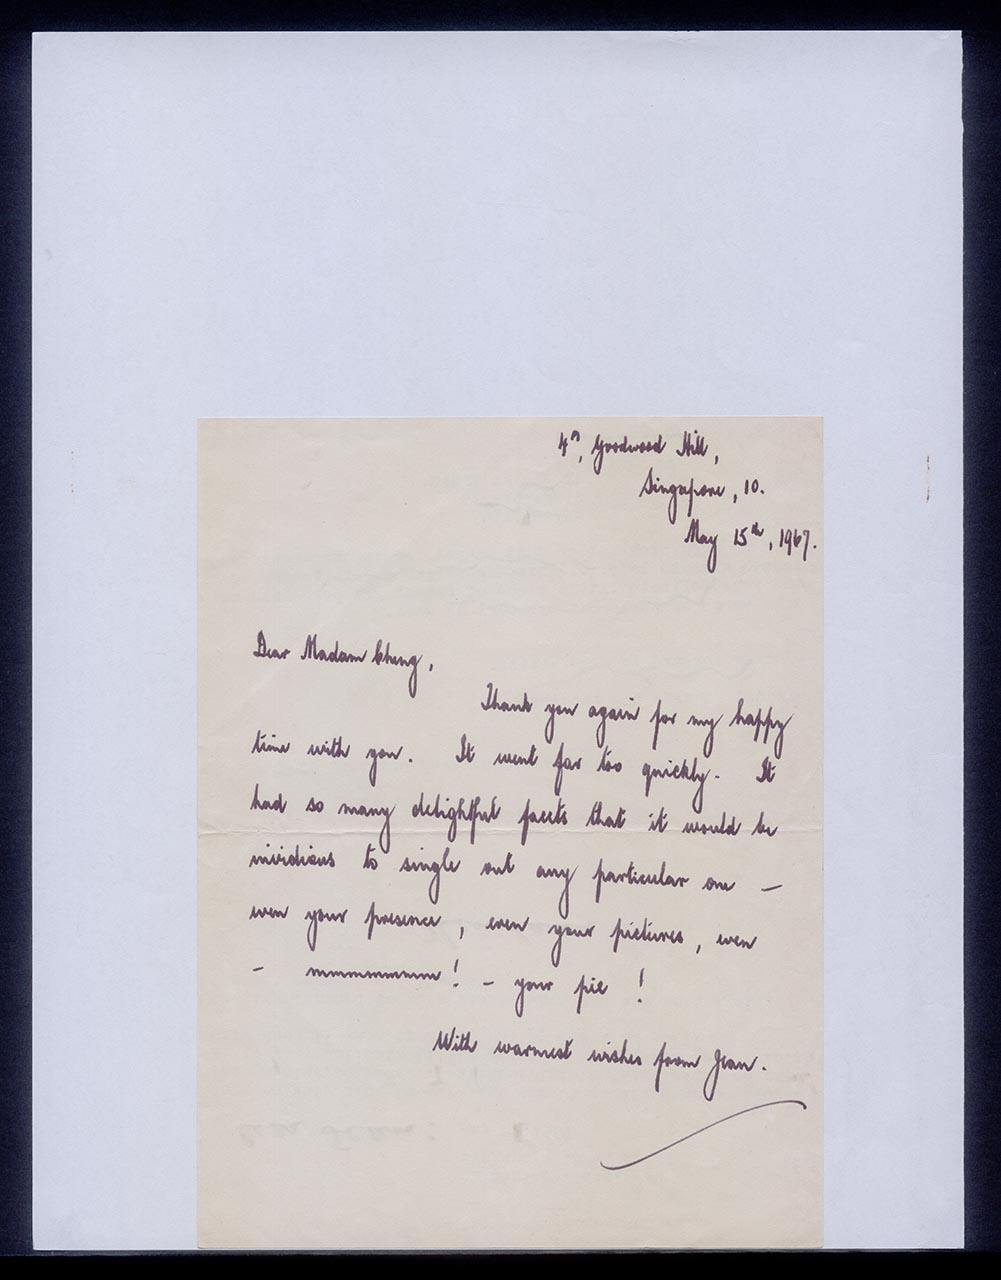 4ᴬ, Goodwood Hill,
Singapore, 10.
May 15th, 1967.
Dear Madam Cheng,
Thank you again for my happy
time with you. It went far too quickly. It
had so many delightful facets that it would be
invidious to single out any particular one –
even your presence, even your pictures, even
- mmmmmmmm! - your pie!
With warmest wishes from Jean.